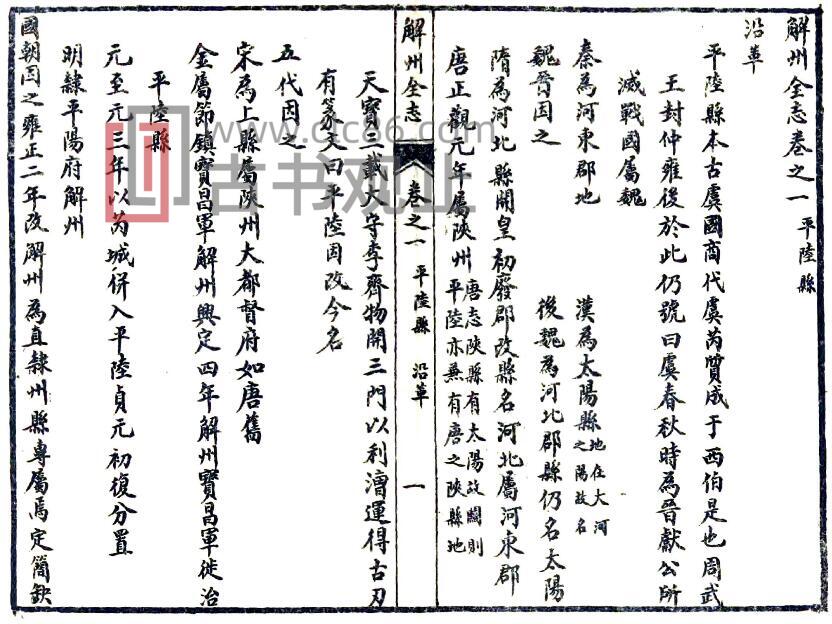 解州全志卷之一 平陸縣
沿革
平陸縣本古虞國商代虞芮質成于西伯是也周武
王封仲雍後於此仍號曰虞春秋時為晉獻公所
滅戰國屬魏
秦為河東郡地 漢為太陽縣地在大河之陽故名
魏晉因之 後魏為河北郡縣仍名太陽
隋為河北縣開皇初廢郡改縣名河北屬河東郡
唐正觀元年屬陝州唐志陝縣有太陽故關則平陸亦兼有唐之陝縣地
解州全志 卷之一 平陸縣 沿革 一
天寶三載大守李齊物開三門以利漕運得古刃
有篆文曰平陸因改今名
五代因之
宋為上縣屬陝州大都督府如唐舊
金屬節鎮寶昌軍解州興定四年解州寶昌軍徙治
平陸縣
元至元三年以芮城併入平陸貞元初復分置
明隸平陽府解州
國朝因之雍正二年改解州為直隸州縣專屬焉定簡缺
www.ctc86.com
古书观止